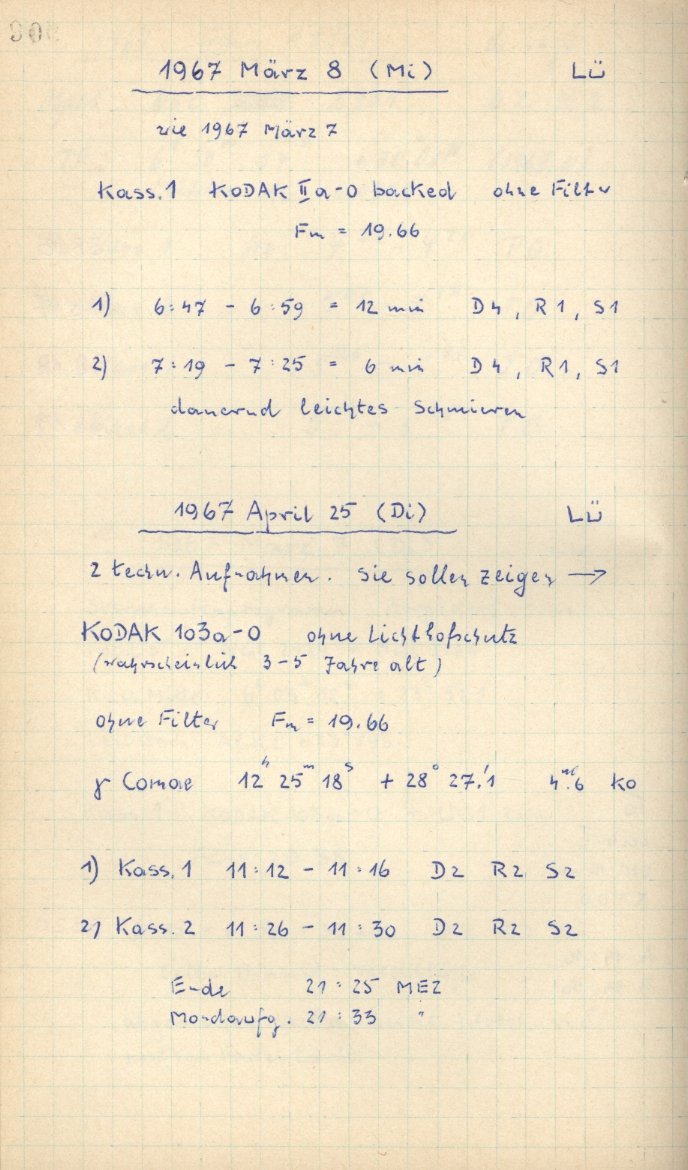 1967 März 8 (Mi) LÜ
wie 1967 März 7
Kass. 1 KODAK IIa-O backed ohne Filter
Fm = 19.66
1) 6:47 - 6:59 = 12 min D4, R1, S1
2) 7:19 - 7:25 = 6 min D4, R1, S1
dauernd leichtes Schmieren
1967 April 25 (Di) LÜ
2 techn. Aufnahmen. Sie sollen zeigen →
KODAK 103a-O ohne Lichthofschutz
(wahrscheinlich 3-5 Jahre alt)
ohne Filter Fm = 19.66
γ Comae 12h 25m 18s + 28° 27.'1 4.m6 K0
1) Kass. 1 11:12 - 11:16 D2 R2 S2
2) Kass. 2 11:26 - 11:30 D2 R2 S2
Ende 21:25 MEZ
Mondaufg. 21:33 "